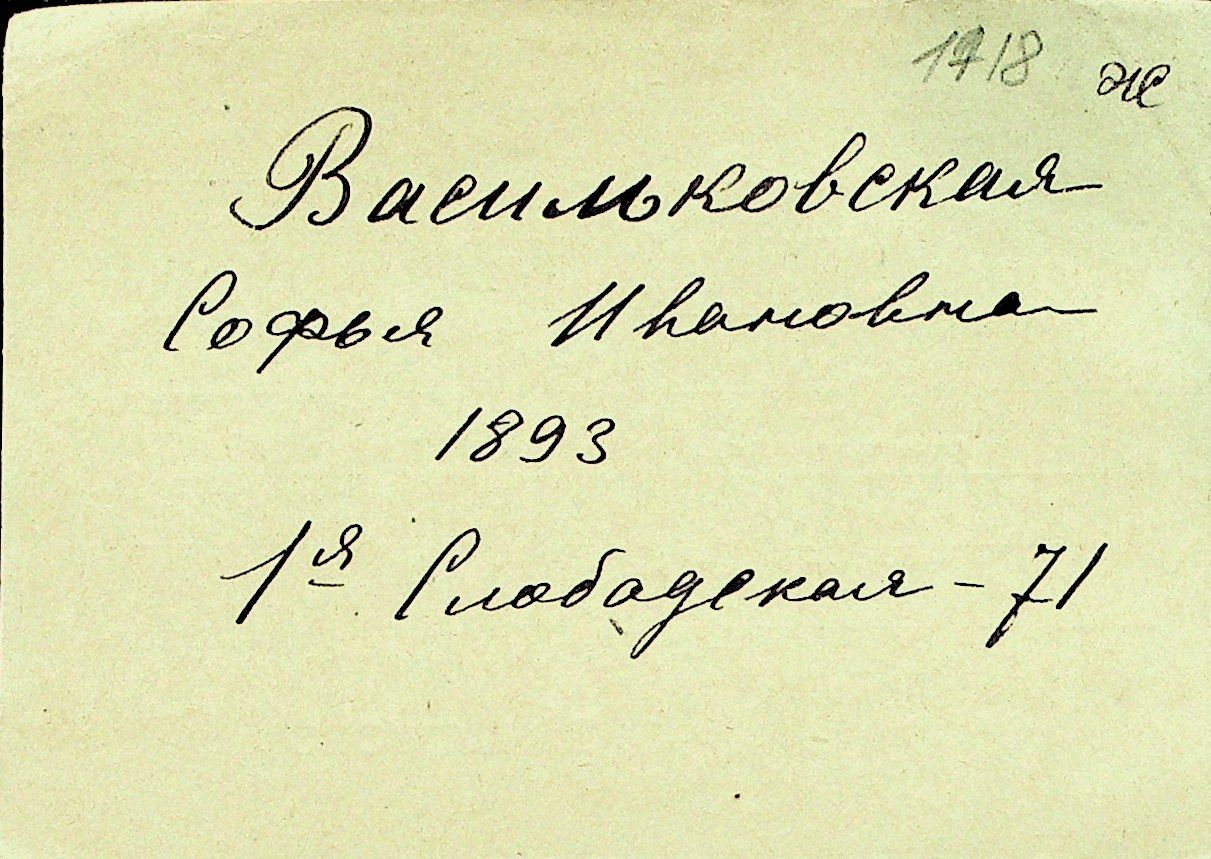 1718 ж
Васильковская
Софья Ивановна
1893
1я Слободская - 71